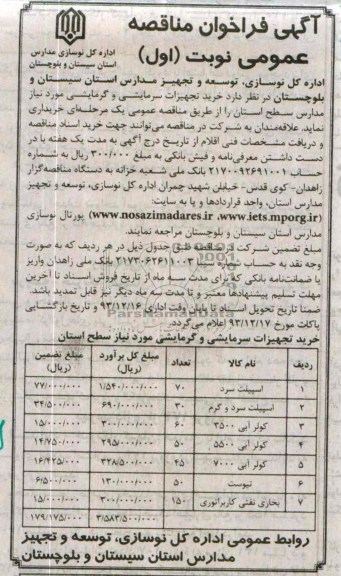 آگهی فراخوان مناقصه
عمومی نوبت (اول)
اداره کل نوسازی مدارس
استان سیستان و بلوچستان
اداره کل نوسازی، توسعه و تجهیز مدارس استان سیستان و
بلوچستان در نظر دارد خرید تجهیزات سرمایشی و گرمایشی مورد نیاز
مدارس سطح استان را از طریق مناقصه عمومی یک مرحله‌ای خریداری
نماید. علاقه‌مندان به شرکت در مناقصه می‌توانند جهت خرید اسناد مناقصه
و دریافت مشخصات فنی اقلام از تاریخ درج آگهی به مدت یک هفته با در
دست داشتن معرفی‌نامه و فیش بانکی به مبلغ ۳۰۰/۰۰۰ ریال به شماره
حساب ۲۱۷۰۰۹۲۶۹۱۰۰۱ بانک ملی شعبه خزانه به دستگاه مناقصه‌گزار
زاهدان- کوی قدس- خیابان شهید چمران اداره کل نوسازی، توسعه و تجهیز
مدارس استان، واحد قراردادها و یا به سایت:
(www.nosazimadares.ir ،www.iets.mporg.ir) پورتال نوسازی
مدارس استان سیستان و بلوچستان مراجعه نمایند.
مبلغ تضمین شرکت در مناقصه برابر جدول ذیل در هر ردیف که به صورت
وجه نقد به حساب شماره ۲۱۷۳۰۶۲۶۱۱۰۰۳ بانک ملی زاهدان واریز
یا ضمانت‌نامه بانکی که برای مدت سه ماه از تاریخ فروش اسناد تا آخرین
مهلت تسلیم پیشنهادها معتبر و تا مدت سه ماه دیگر نیز قابل تمدید باشد.
ضمنا تاریخ تحویل اسناد تا پایان وقت اداری ۹۳/۱۲/۱۶ و تاریخ بازگشایی
پاکات مورخ ۹۳/۱۲/۱۷ اعلام می‌گردد.
خرید تجهیزات سرمایشی و گرمایشی مورد نیاز سطح استان
ردیف نام کالا تعداد مبلغ کل برآورد (ریال) مبلغ تضمین (ریال)
۱ اسپیلت سرد ۷۰ ۱/۵۴۰/۰۰۰/۰۰۰ ۷۷/۰۰۰/۰۰۰
۲ اسپیلت سرد و گرم ۳۰ ۶۹۰/۰۰۰/۰۰۰ ۳۴/۵۰۰/۰۰۰
۳ کولر آبی ۳۵۰۰ ۶۰ ۳۰۰/۰۰۰/۰۰۰ ۱۵/۰۰۰/۰۰۰
۴ کولر آبی ۵۵۰۰ ۵۰ ۲۹۵/۰۰۰/۰۰۰ ۱۴/۷۵۰/۰۰۰
۵ کولر آبی ۷۰۰۰ ۴۵ ۳۲۸/۵۰۰/۰۰۰ ۱۶/۴۲۵/۰۰۰
۶ نیوست ۵۰ ۱۳۰/۰۰۰/۰۰۰ ۶/۵۰۰/۰۰۰
۷ بخاری نفتی کاربراتوری ۱۵۰ ۳۰۰/۰۰۰/۰۰۰ ۱۵/۰۰۰/۰۰۰
۳/۵۸۳/۵۰۰/۰۰۰ ۱۷۹/۱۷۵/۰۰۰
روابط عمومی اداره کل نوسازی، توسعه و تجهیز
مدارس استان سیستان و بلوچستان